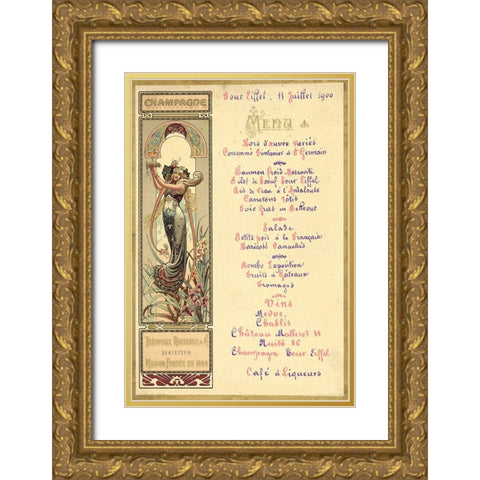 CHAMPAGNE
THÉOPHILE ROEDERER & Co
REIMS
MAISON FONDÉE EN 1864
Tour Eiffel, 11 Juillet 1900
MENU
Hors d'œuvre Variés
Consommé Printanier & St Germain
Saumon Froid Moscovite
Filet de Bœuf Tour Eiffel
Ris de Veau à l'Andalouse
Canetons Rôtis
Foie Gras en Bellevue
Salade
Petits pois à la Française
Haricots Panachés
Bombe Exposition
Fruits & Gâteaux
Fromages
Vins
Médoc,
Chablis
Château Malleret 88
Nuits 86
Champagne Tour Eiffel
Café & Liqueurs